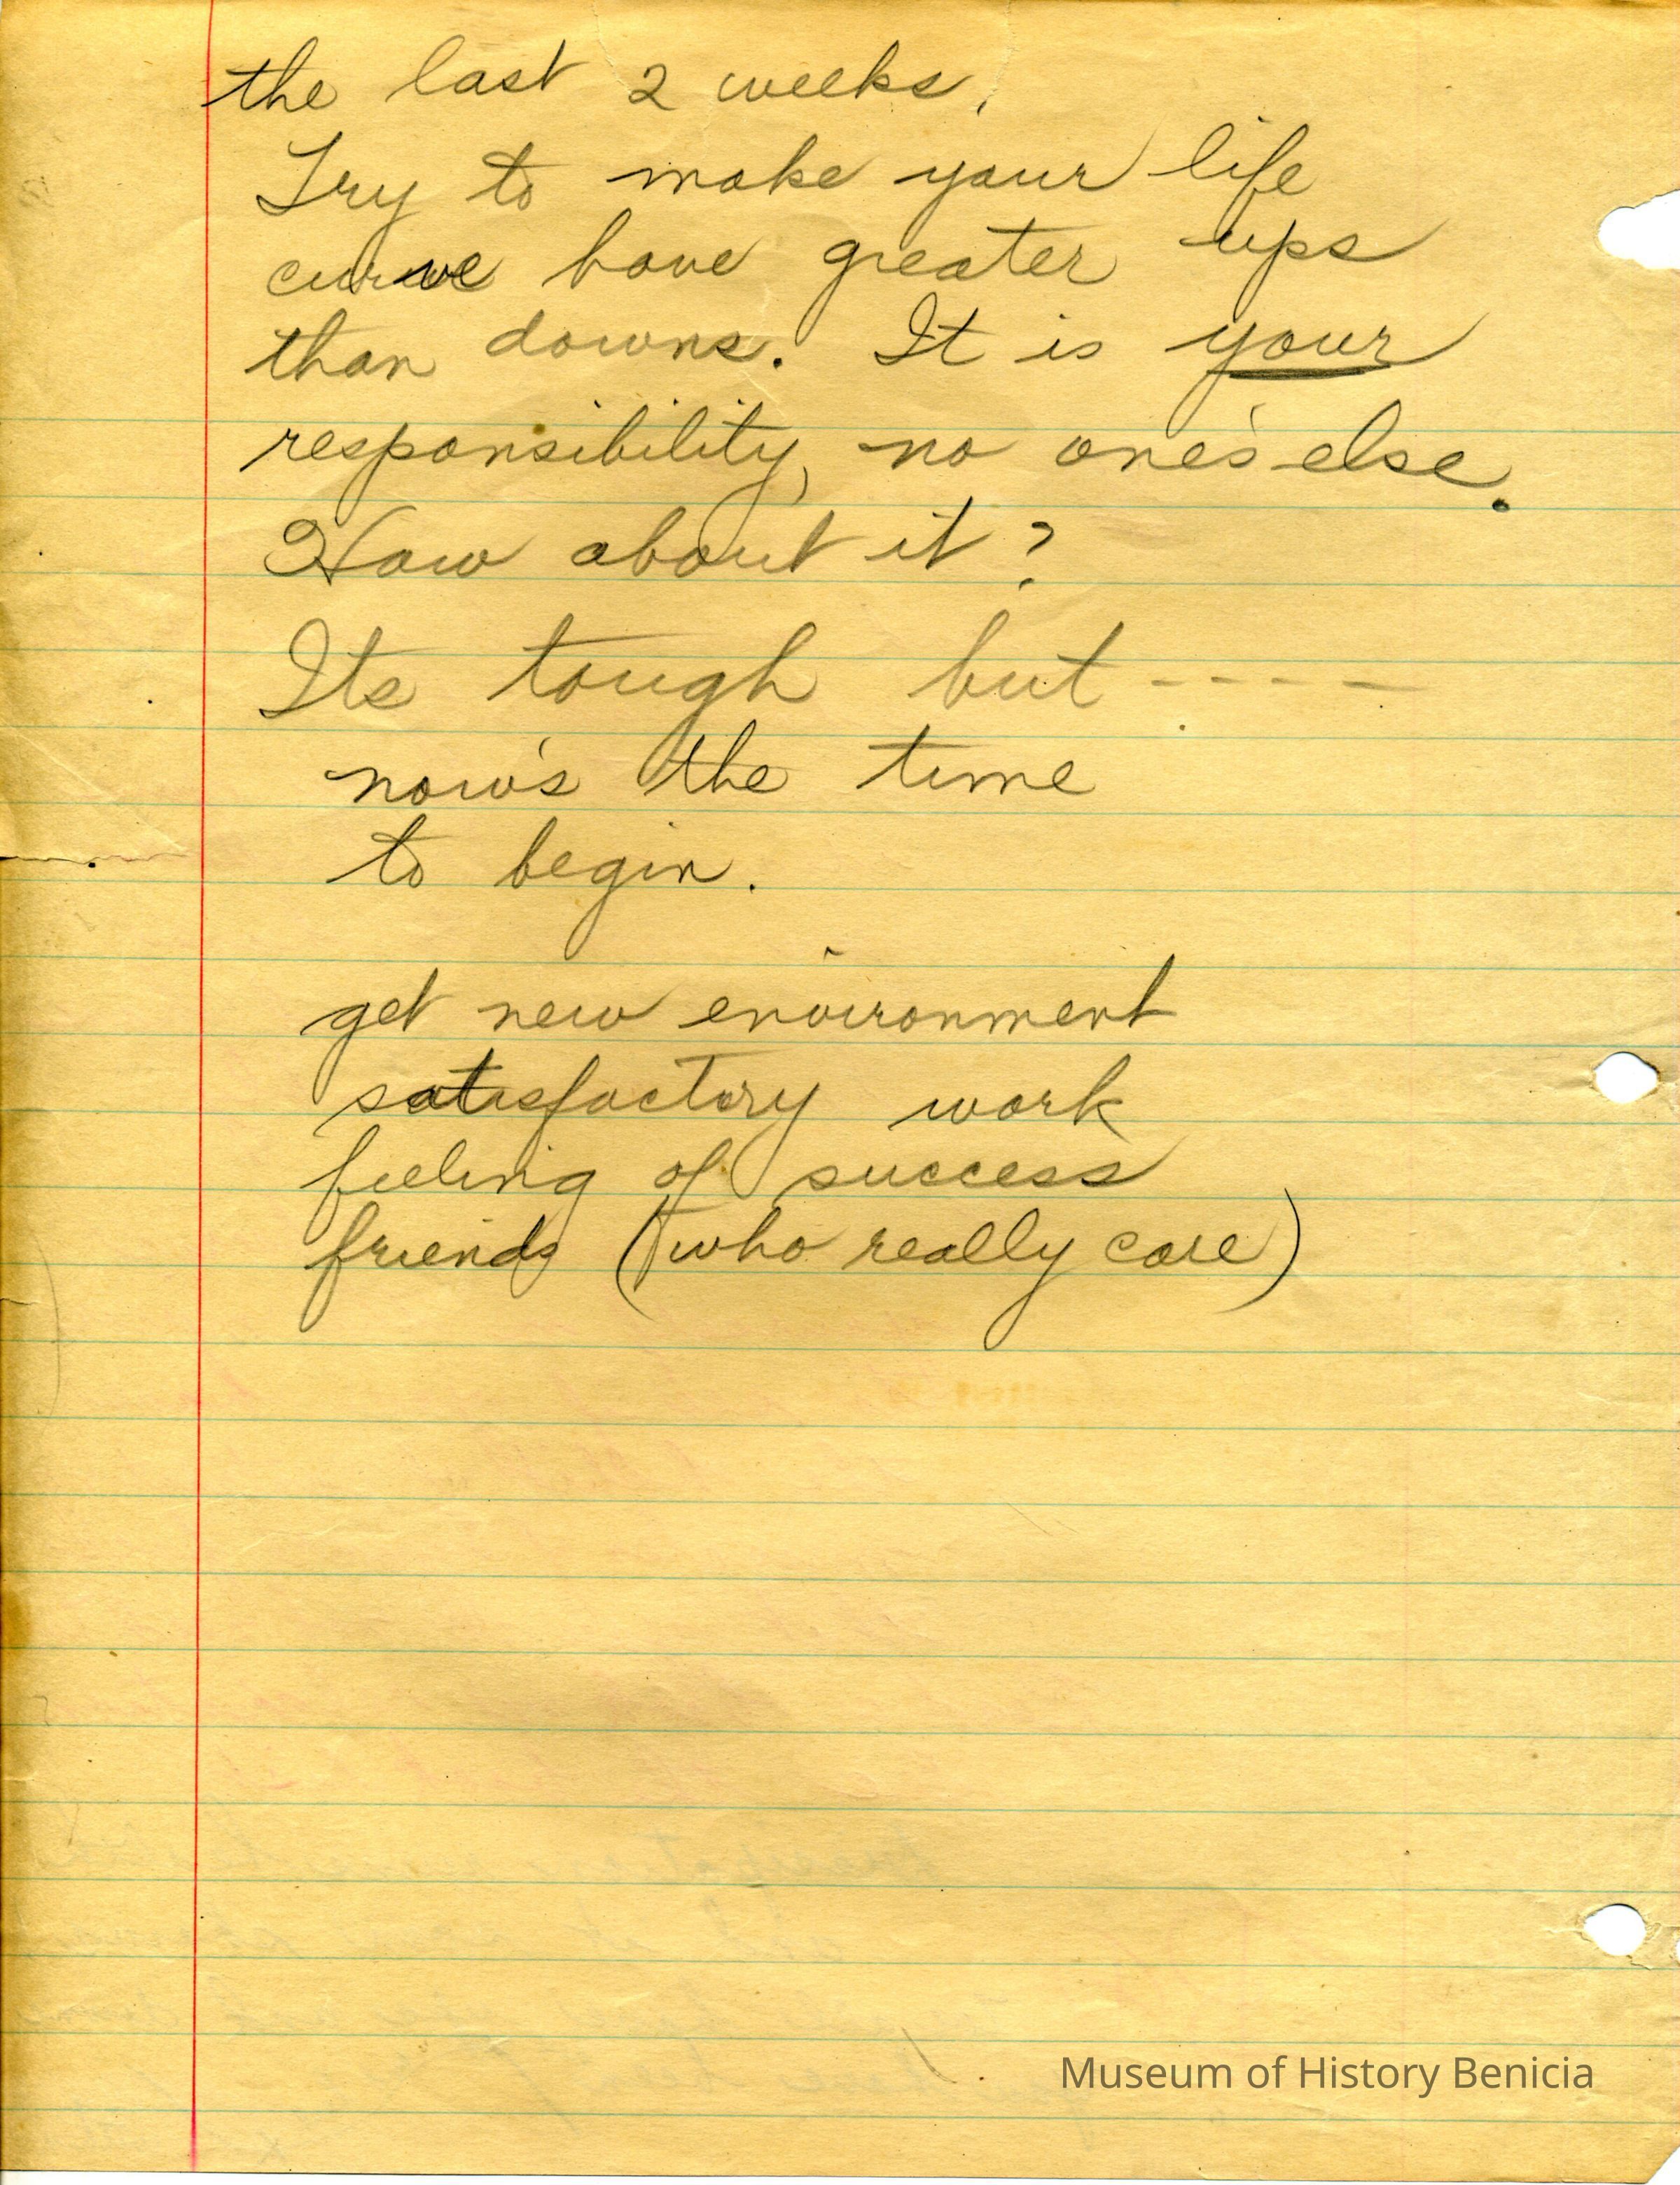 the last 2 weeks.
Try to make your life
curve have greater ups
than downs. It is your
responsibility, no one's else.
How about it?
Its tough but ----
now's the time
to begin.
get new environment
satisfactory work
feeling of success
friends (who really care)
Museum of History Benicia